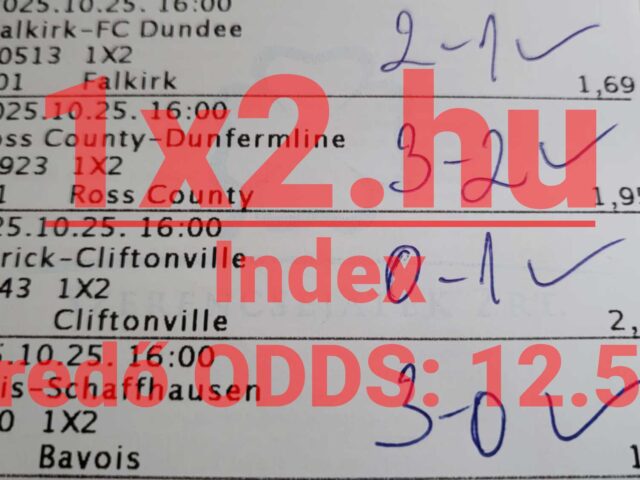 025.10.25. 16:00
alkirk-FC Dundee
0513 1X2
2-1 ✓
01 Falkirk 1,69
025.10.25. 16:00
ss County-Dunfermline
923 1X2
3-2 ✓
1 Ross County 1,95
1x2.hu
25.10.25. 16:00
rick-Cliftonville
Index
43 1X2
0-1 ✓
Cliftonville 2,
5.10.25. 16:00
redő ODDS: 12.5
is-Schaffhausen
0 1X2
3-0 ✓
Bavois 1